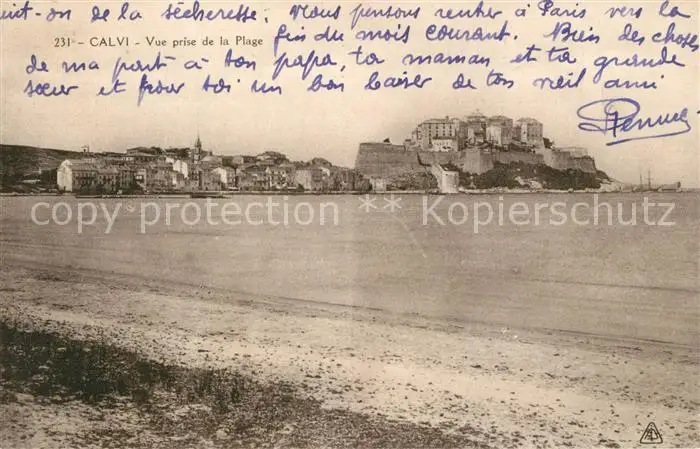 uit-on de la sécheresse. Nous pensons rentrer à Paris vers la
231 - CALVI - Vue prise de la Plage
fin du mois courant. Bien des choses
de ma part à ton papa, ta maman et ta grande
sœur et pour toi un bon baiser de ton vieil ami
copyright ** Kopierschutz